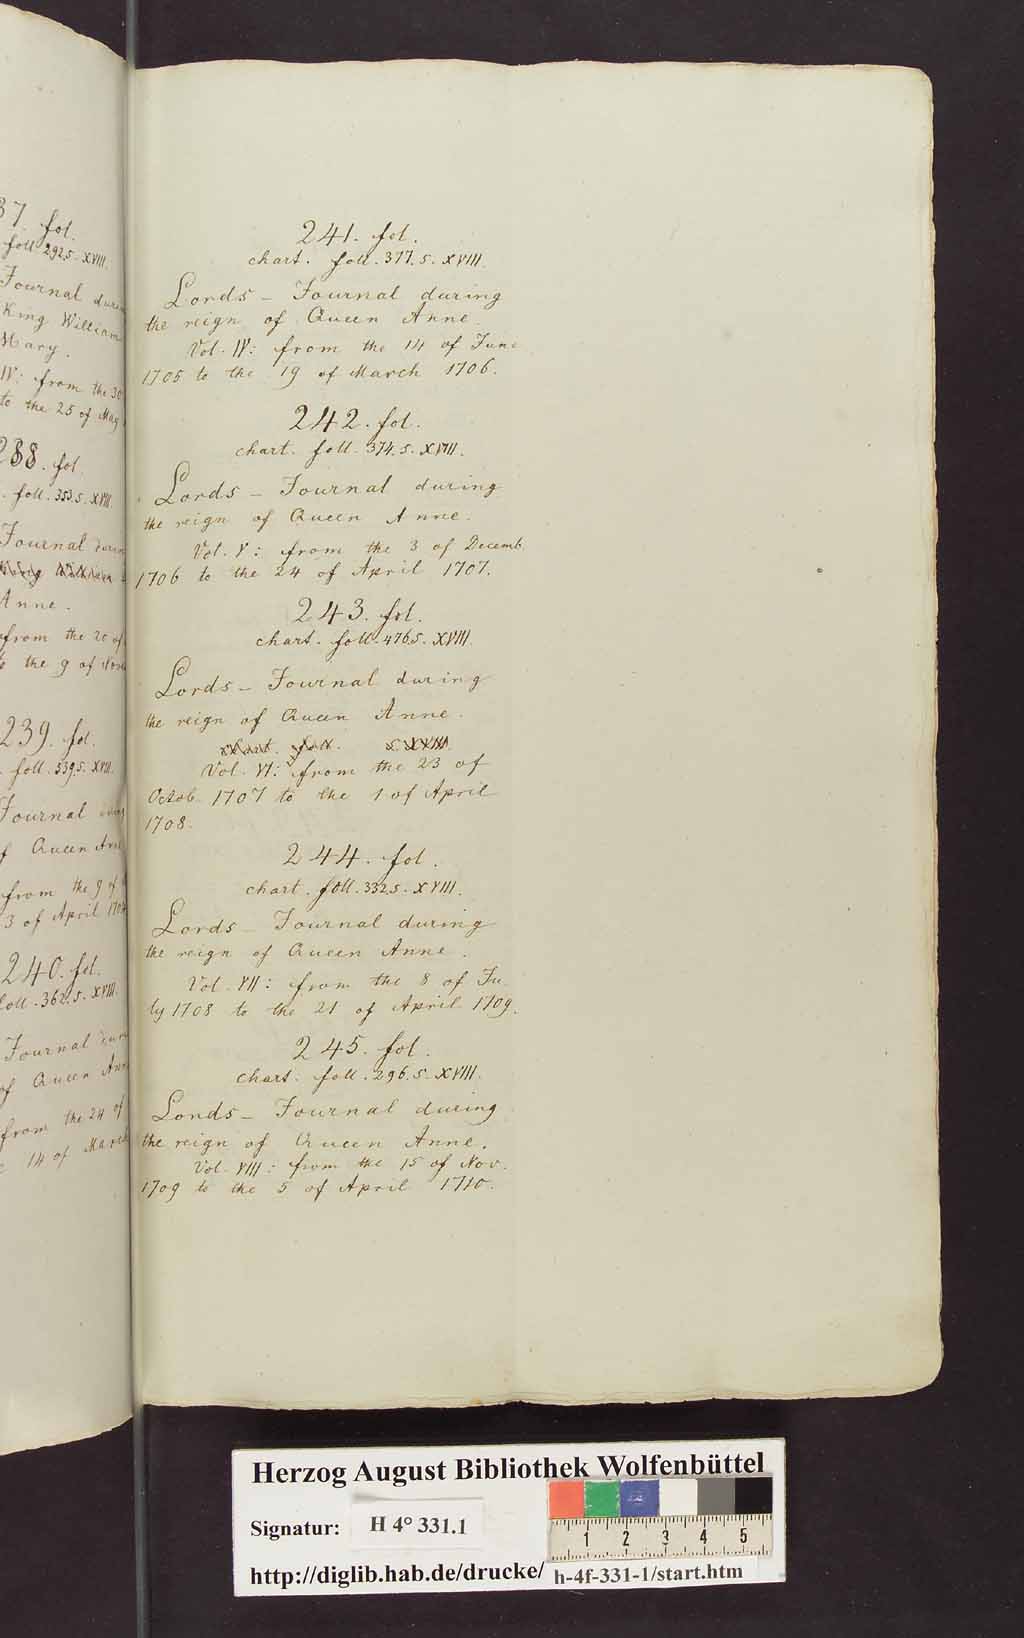 37. fol.
foll. 292. s. XVIII.
Journal
King William
Mary.
IV: from the 30
to the 25 of May
238. fol.
. foll. 353. s. XVIII.
Journal
Anne.
from the 20 of
the 9 of
239. fol.
. foll. 339. s. XVIII.
Journal
Queen
from the 9 of
3 of April
240. fol.
foll. 362. s. XVIII.
Journal
of Queen
from the 24 of
14 of March
241. fol.
chart. foll. 377. s. XVIII.
Lords - Journal during
the reign of Queen Anne.
Vol. IV: from the 14 of June
1705 to the 19 of March 1706.
242. fol.
chart. foll. 374. s. XVIII.
Lords - Journal during
the reign of Queen Anne.
Vol. V: from the 3 of Decemb.
1706 to the 24 of April 1707.
243. fol.
chart. foll. 476. s. XVIII.
Lords - Journal during
the reign of Queen Anne.
chart. foll. s. XVIII.
Vol. VI: from the 23 of
Octob. 1707 to the 1 of April
1708.
244. fol.
chart. foll. 332. s. XVIII.
Lords - Journal during
the reign of Queen Anne.
Vol. VII: from the 8 of Ju-
ly 1708 to the 21 of April 1709.
245. fol.
chart. foll. 296. s. XVIII.
Lords - Journal during
the reign of Queen Anne.
Vol. VIII: from the 15 of Nov.
1709 to the 5 of April 1710.
Herzog August Bibliothek Wolfenbüttel
Signatur: H 4° 331.1
1 2 3 4 5
http://diglib.hab.de/drucke/ h-4f-331-1/start.htm